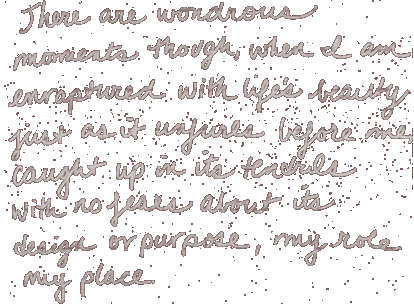 There are wondrous
moments though, when I am
enraptured with life's beauty
just as it unfurles before me,
caught up in its tendrils
with no fears about its
design or purpose, my role
my place